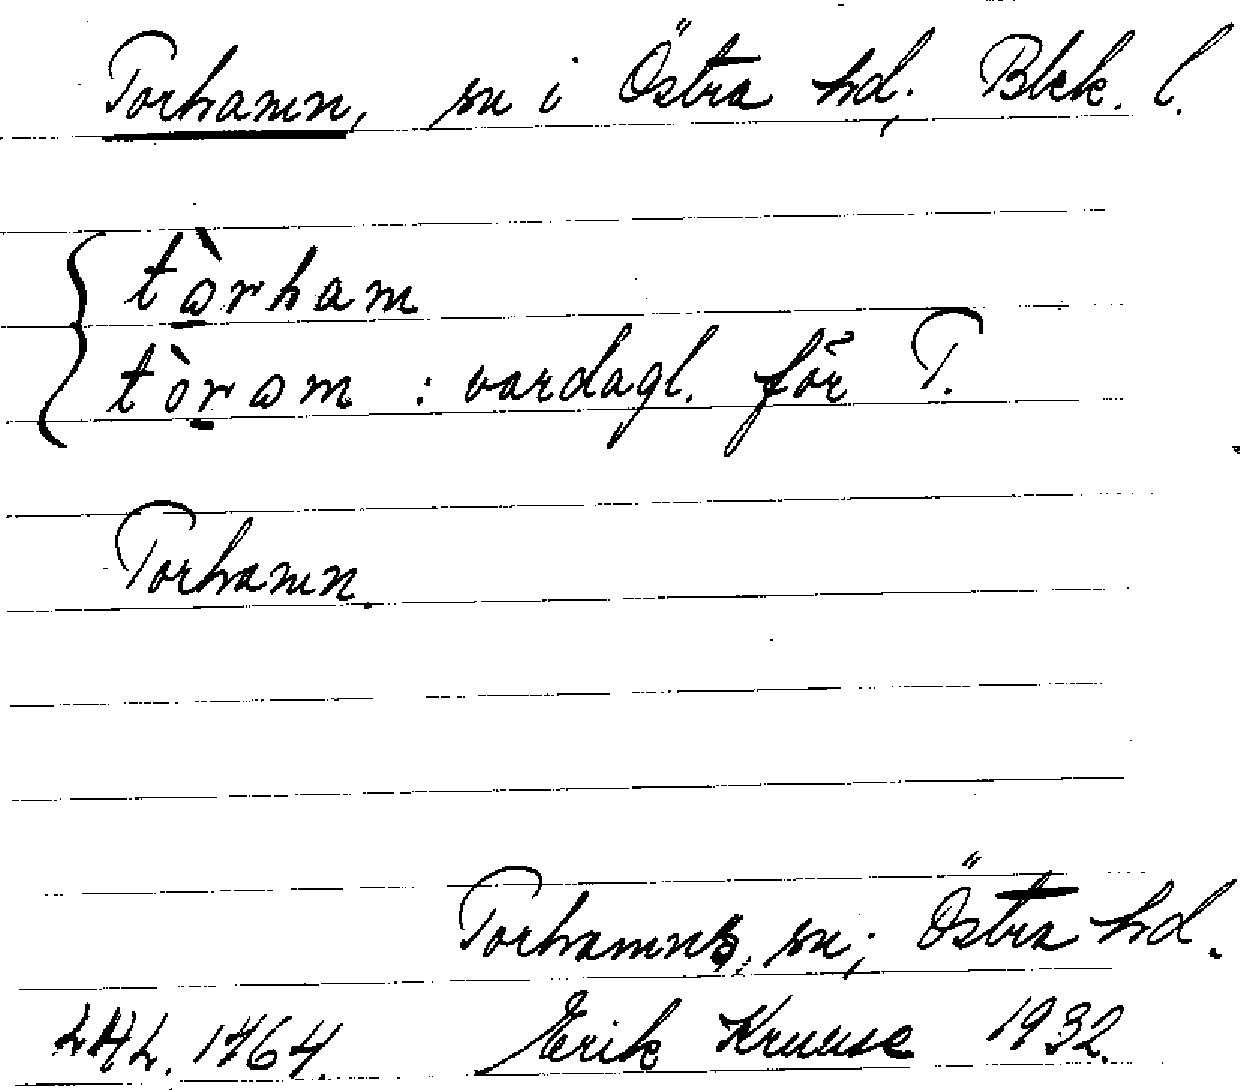 Torhamn, sn i Östra hd, Blek. l.
tòrham
tòrəm : vardagl. för T.
Torhamn.
Torhamns, sn; Östra hd.
LAL. 1464. Erik Kruuse 1932.